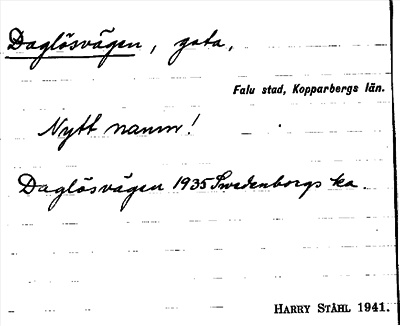 Daglösvägen, gata,
Falu stad, Kopparbergs län.
Nytt namn!
Daglösvägen 1935 Swedenborgs ka.
HARRY STÅHL 1941.